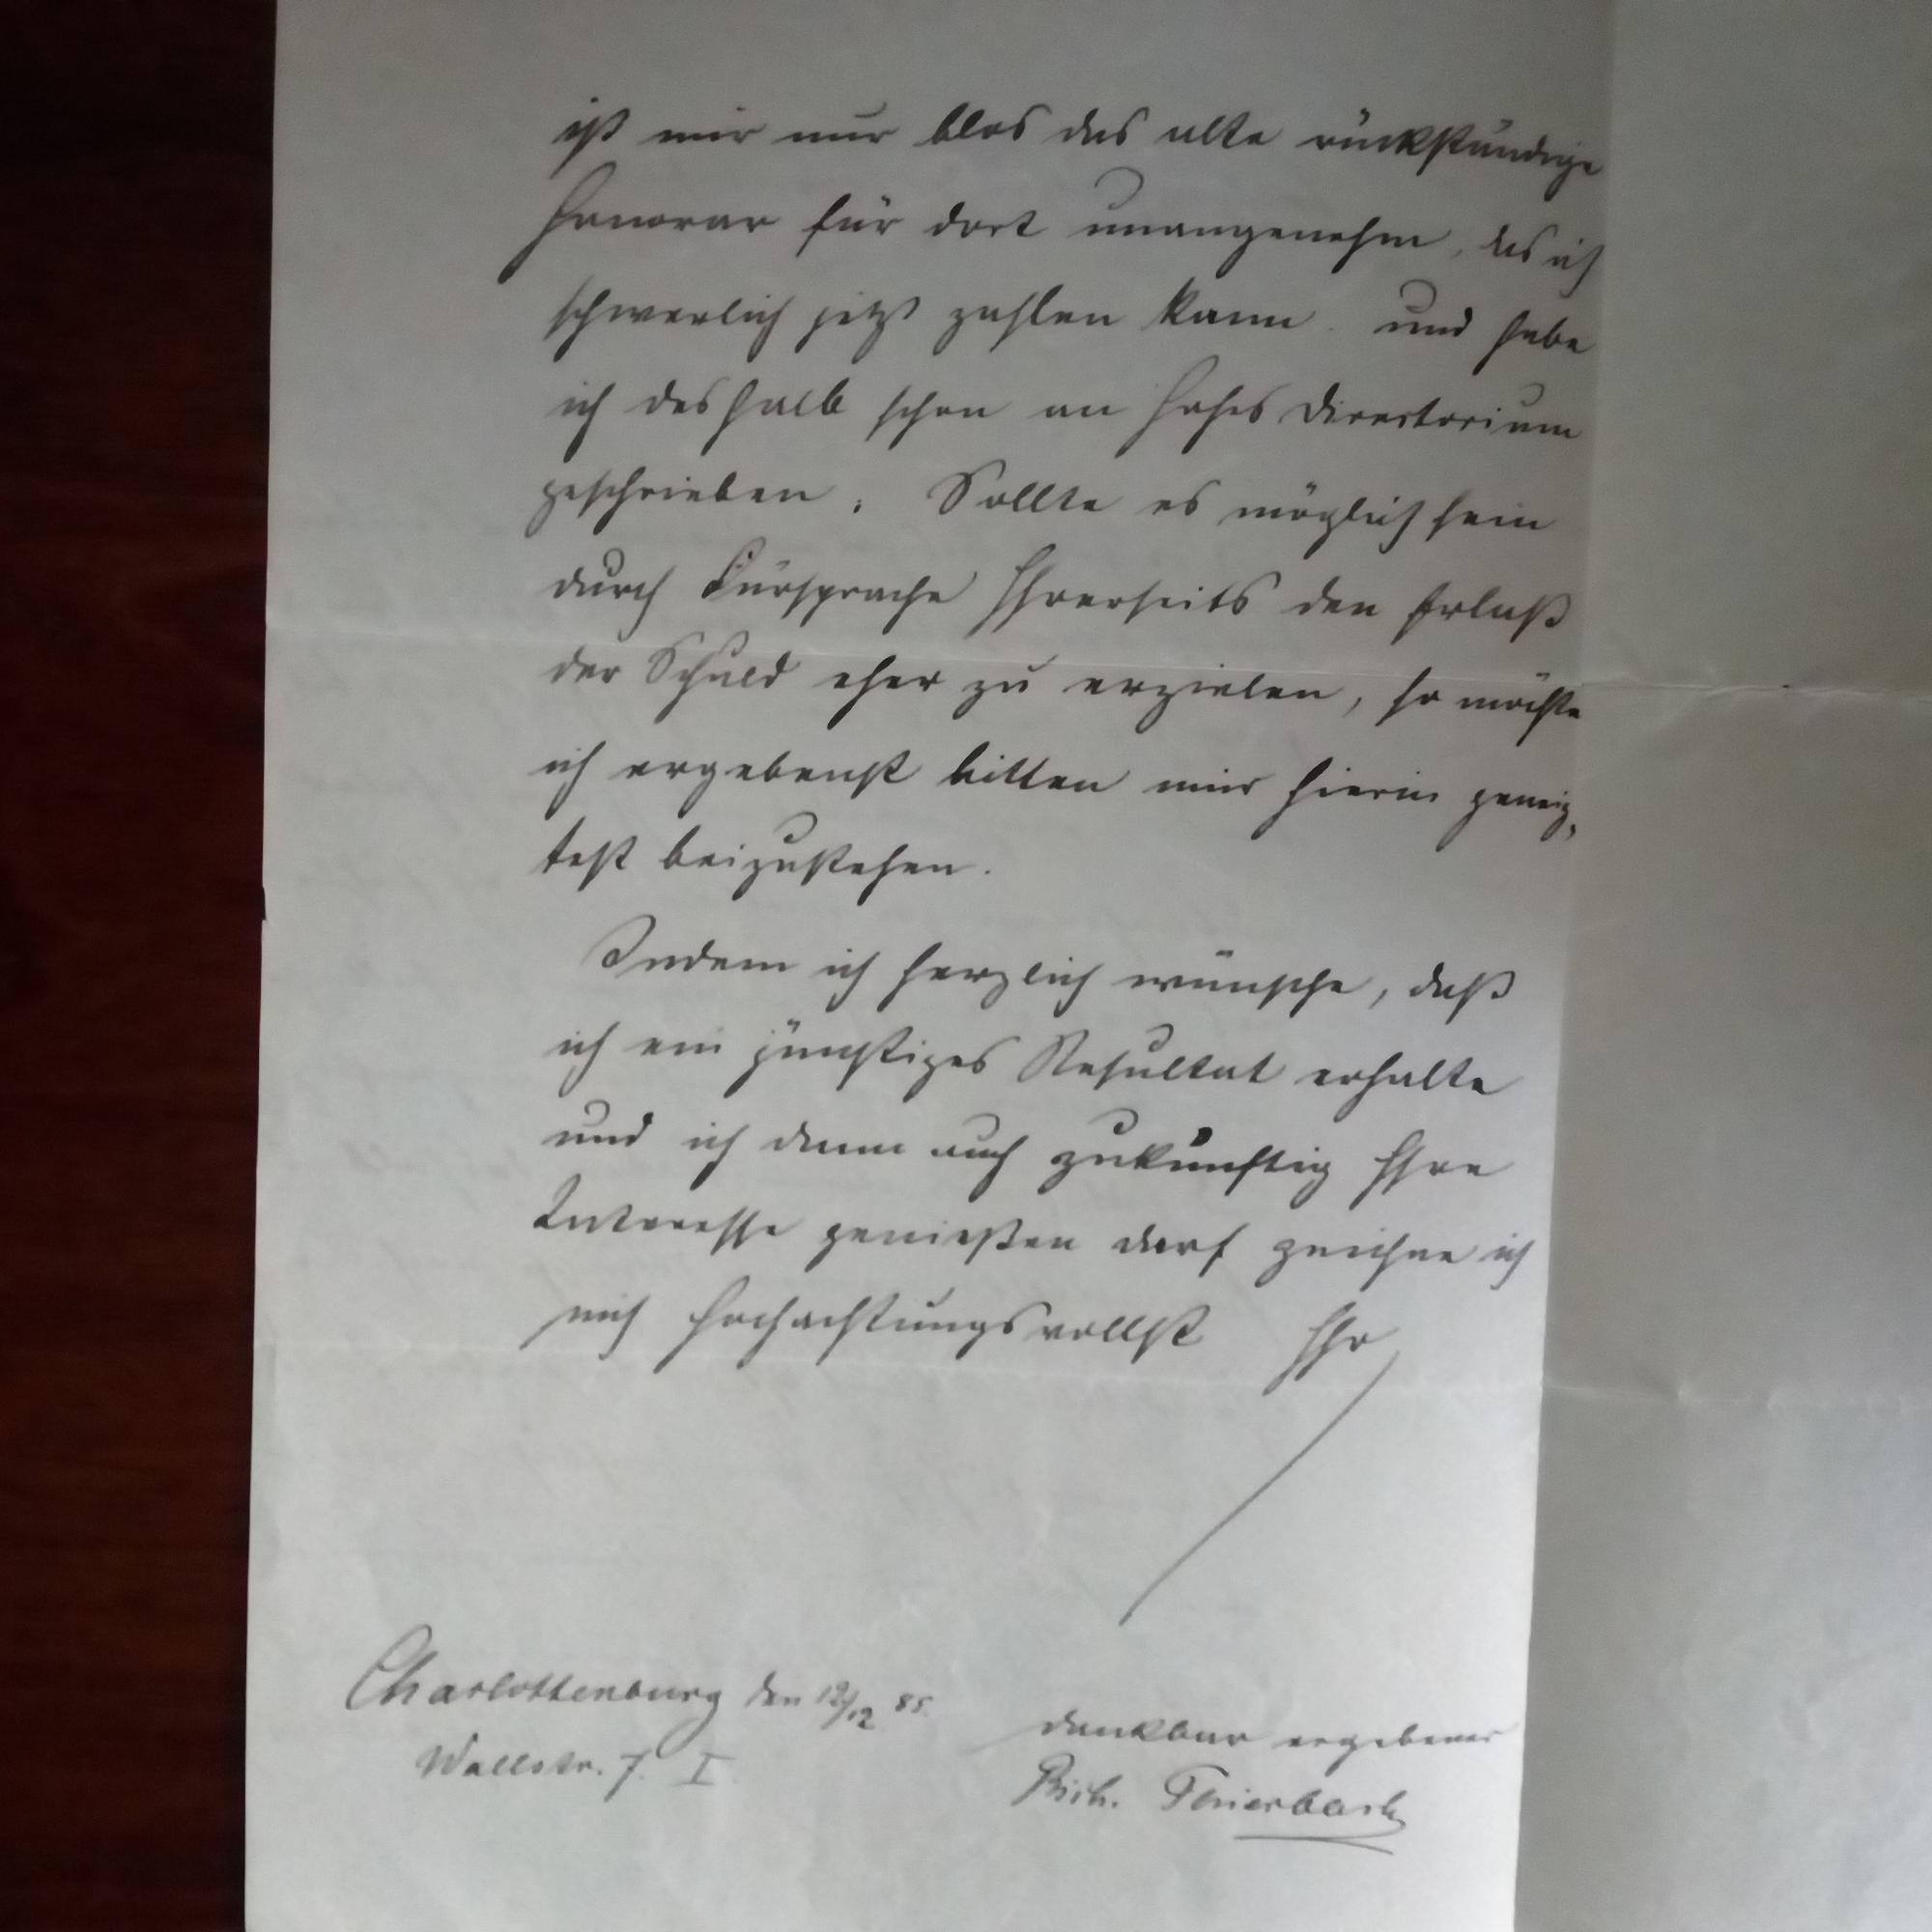 ist mir nur blos das alte rückständige
Honorar für dort unangenehm, das ich
schwerlich jetzt zahlen kann. und habe
ich deshalb schon an hohes Directorium
geschrieben. Sollte es möglich sein
durch Fürsprache Ihrerseits den Erlaß
der Schuld eher zu erzielen, so möchte
ich ergebenst bitten mir hierin geneig-
test beizustehen.
Indem ich herzlich wünsche, daß
ich ein günstiges Resultat erhalte
und ich dann auch zukünftig Ihre
Interesse genießen darf zeichne ich
mich hochachtungsvollst Ihr
Charlottenburg den 12/12 85.
Wallstr. 7. I.
dankbar ergebener
Rich. Feuerbach